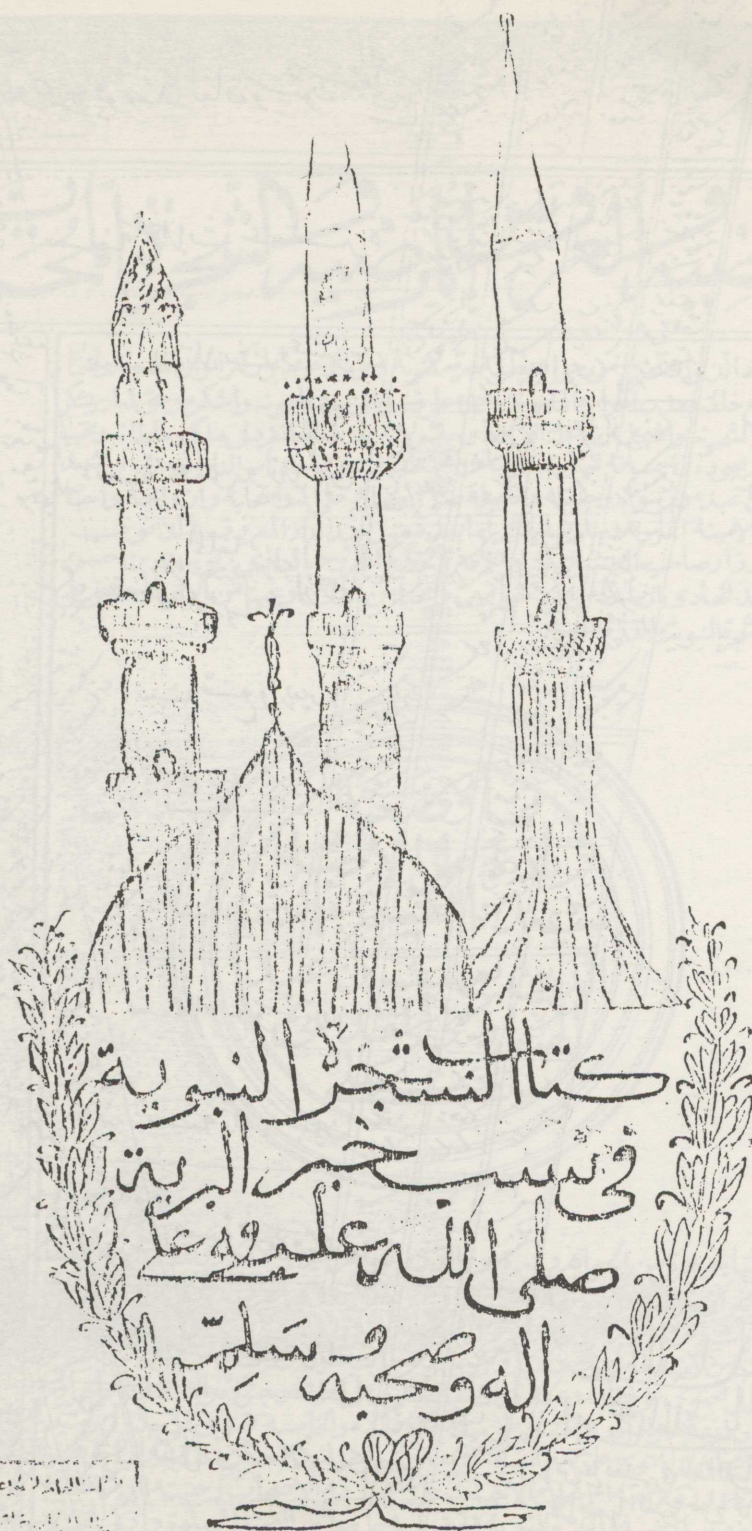 كتاب الشجرة النبوية
في نسب خير البرية
صلى الله عليه وعلى
اله وصحبه وسلم